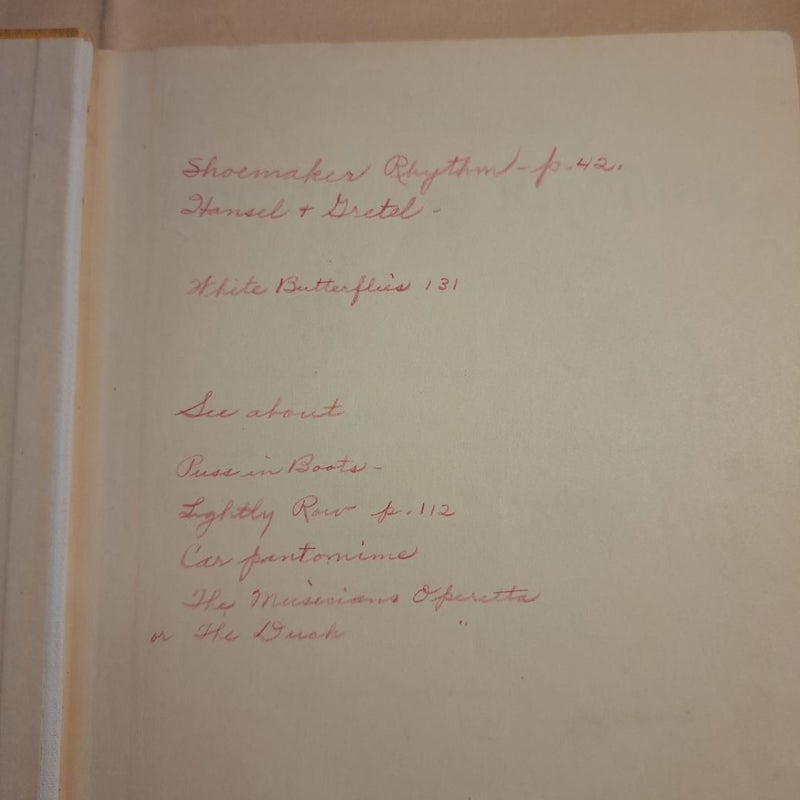 Shoemaker Rhythm - p. 42.
Hansel + Gretel -
White Butterflies 131
See about
Puss in Boots -
Lightly Row p. 112
Car pantomime
The Musicians Operetta
or The Duck "